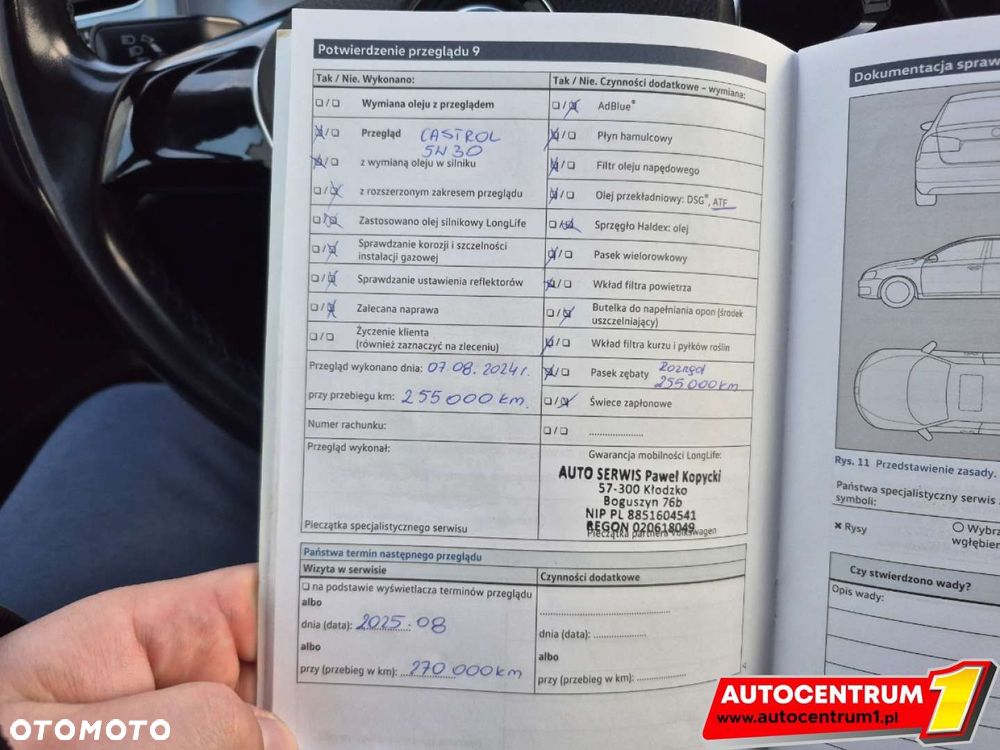 Potwierdzenie przeglądu 9
Tak / Nie. Wykonano:
❏/❏ Wymiana oleju z przeglądem
❏/❏ Przegląd CASTROL
5W30
❏/❏ z wymianą oleju w silniku
❏/❏ z rozszerzonym zakresem przeglądu
❏/❏ Zastosowano olej silnikowy LongLife
❏/❏ Sprawdzanie korozji i szczelności
instalacji gazowej
❏/❏ Sprawdzanie ustawienia reflektorów
❏/❏ Zalecana naprawa
❏/❏ Życzenie klienta
(również zaznaczyć na zleceniu)
Przegląd wykonano dnia: 07 08. 2024 r.
przy przebiegu km: 255 000 km.
Numer rachunku:
Przegląd wykonał:
Pieczątka specjalistycznego serwisu
Tak / Nie. Czynności dodatkowe – wymiana:
❏/❏ AdBlue®
❏/❏ Płyn hamulcowy
❏/❏ Filtr oleju napędowego
❏/❏ Olej przekładniowy: DSG®, ATF
❏/❏ Sprzęgło Haldex: olej
❏/❏ Pasek wielorowkowy
❏/❏ Wkład filtra powietrza
❏/❏ Butelka do napełniania opon (środek
uszczelniający)
❏/❏ Wkład filtra kurzu i pyłków roślin
❏/❏ Pasek zębaty
255 000 km
❏/❏ Świece zapłonowe
❏/❏ ......................
Gwarancja mobilności LongLife:
AUTO SERWIS Paweł Kopycki
57-300 Kłodzko
Boguszyn 76b
NIP PL 8851604541
REGON 020618049
Pieczątka partnera Volkswagen
Państwa termin następnego przeglądu
Wizyta w serwisie
❏ na podstawie wyświetlacza terminów przeglądu
albo
dnia (data): 2025.08
albo
przy (przebieg w km): 270 000 km
Czynności dodatkowe
dnia (data): ................
albo
przy (przebieg w km): ................
4
Dokumentacja spraw
Rys. 11 Przedstawienie zasady.
Państwa specjalistyczny serwis
symboli:
✖ Rysy
○ Wybrz
wgłębien
Czy stwierdzono wady?
Opis wady:
OTOMOTO
AUTOCENTRUM 1
www.autocentrum1.pl